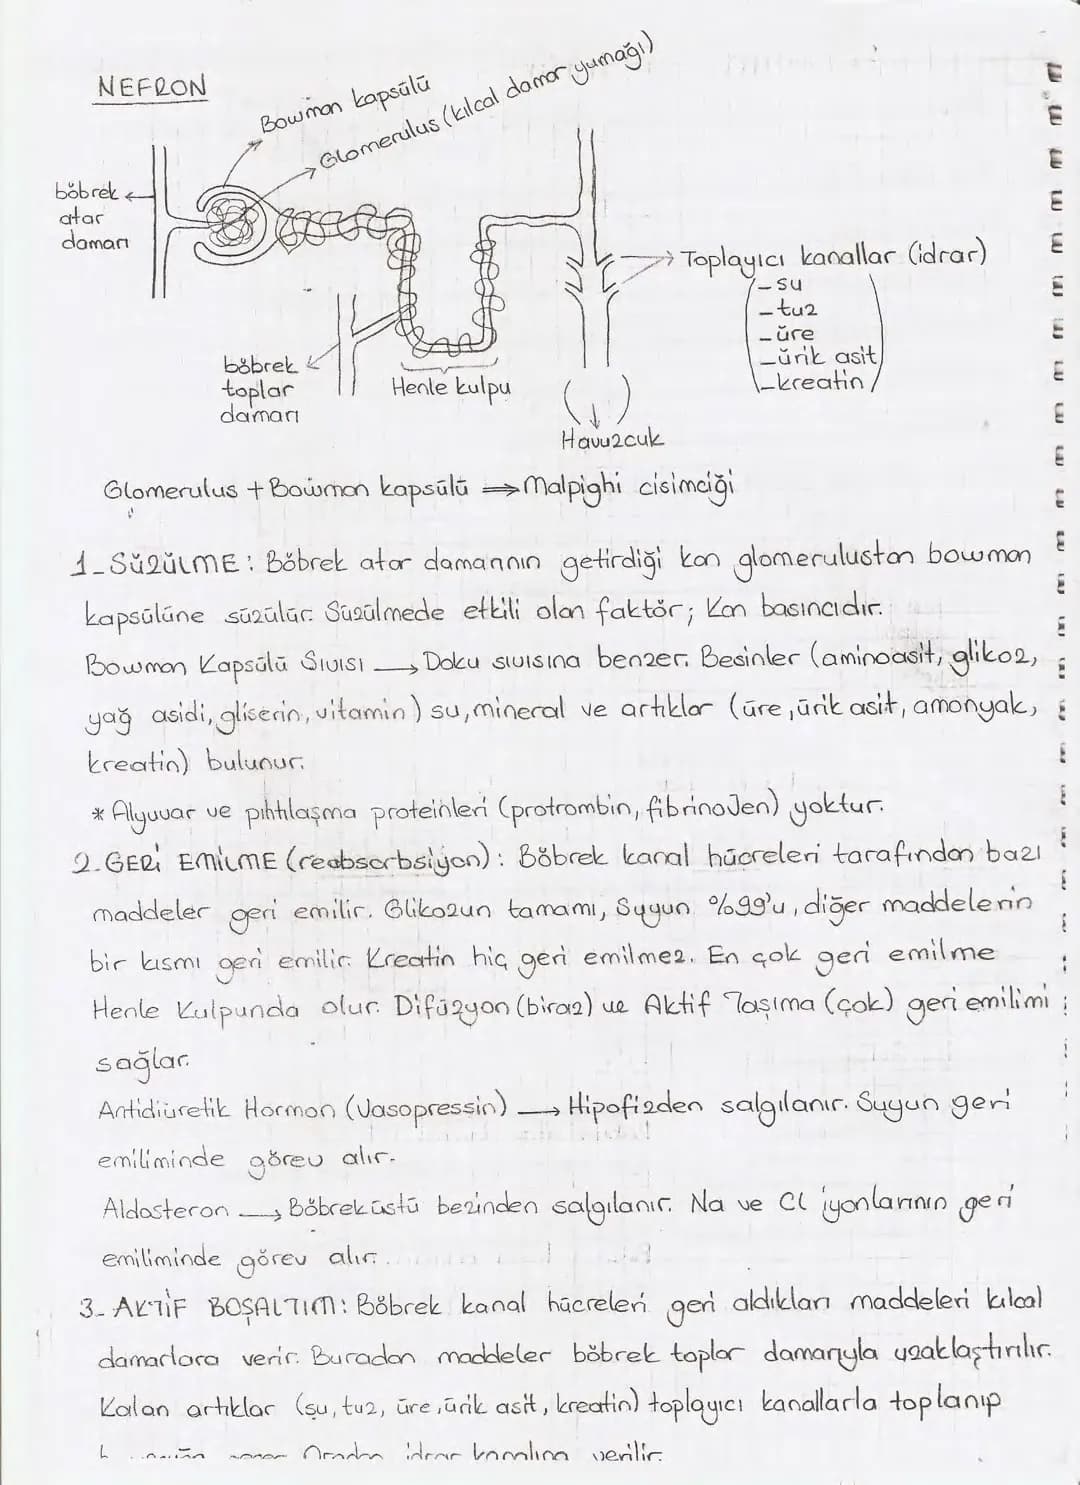 NEFRON
Bowman kapsülü
Glomerulus (kılcal damar yumağı)
böbrek
atar
damarı
Toplayıcı kanallar (idrar)
-su
-tuz
-üre
-ürik asit
-kreatin
böbrek
toplar
damarı
Henle kulpu
Havuzcuk
Glomerulus + Bowman kapsülü ⟹ Malpighi cisimciği
1-SÜZÜLME: Böbrek atar damarının getirdiği kan glomerulustan bowman
kapsülüne süzülür. Süzülmede etkili olan faktör; Kan basıncıdır.
Bowman Kapsülü Sıvısı → Doku sıvısına benzer. Besinler (aminoasit, glikoz,
yağ asidi, gliserin, vitamin) su, mineral ve artıklar (üre, ürik asit, amonyak,
kreatin) bulunur.
* Alyuvar ve pıhtılaşma proteinleri (protrombin, fibrinoJen) yoktur.
2-GERİ EMİLME (reabsorbsiyon): Böbrek kanal hücreleri tarafından bazı
maddeler geri emilir. Glikozun tamamı, Suyun %99'u, diğer maddelerin
bir kısmı geri emilir. Kreatin hiç geri emilmez. En çok geri emilme
Henle Kulpunda olur. Difüzyon (biraz) ve Aktif Taşıma (çok) geri emilimi
sağlar.
Antidiüretik Hormon (Vasopressin) → Hipofizden salgılanır. Suyun geri
emiliminde görev alır.
Aldosteron → Böbreküstü bezinden salgılanır. Na ve Cl iyonlarının geri
emiliminde görev alır.
3- AKTİF BOŞALTIM: Böbrek kanal hücreleri geri aldıkları maddeleri kılcal
damarlara verir. Buradan maddeler böbrek toplar damarıyla uzaklaştırılır.
Kalan artıklar (su, tuz, üre, ürik asit, kreatin) toplayıcı kanallarla toplanıp
idrar kanalına verilir.